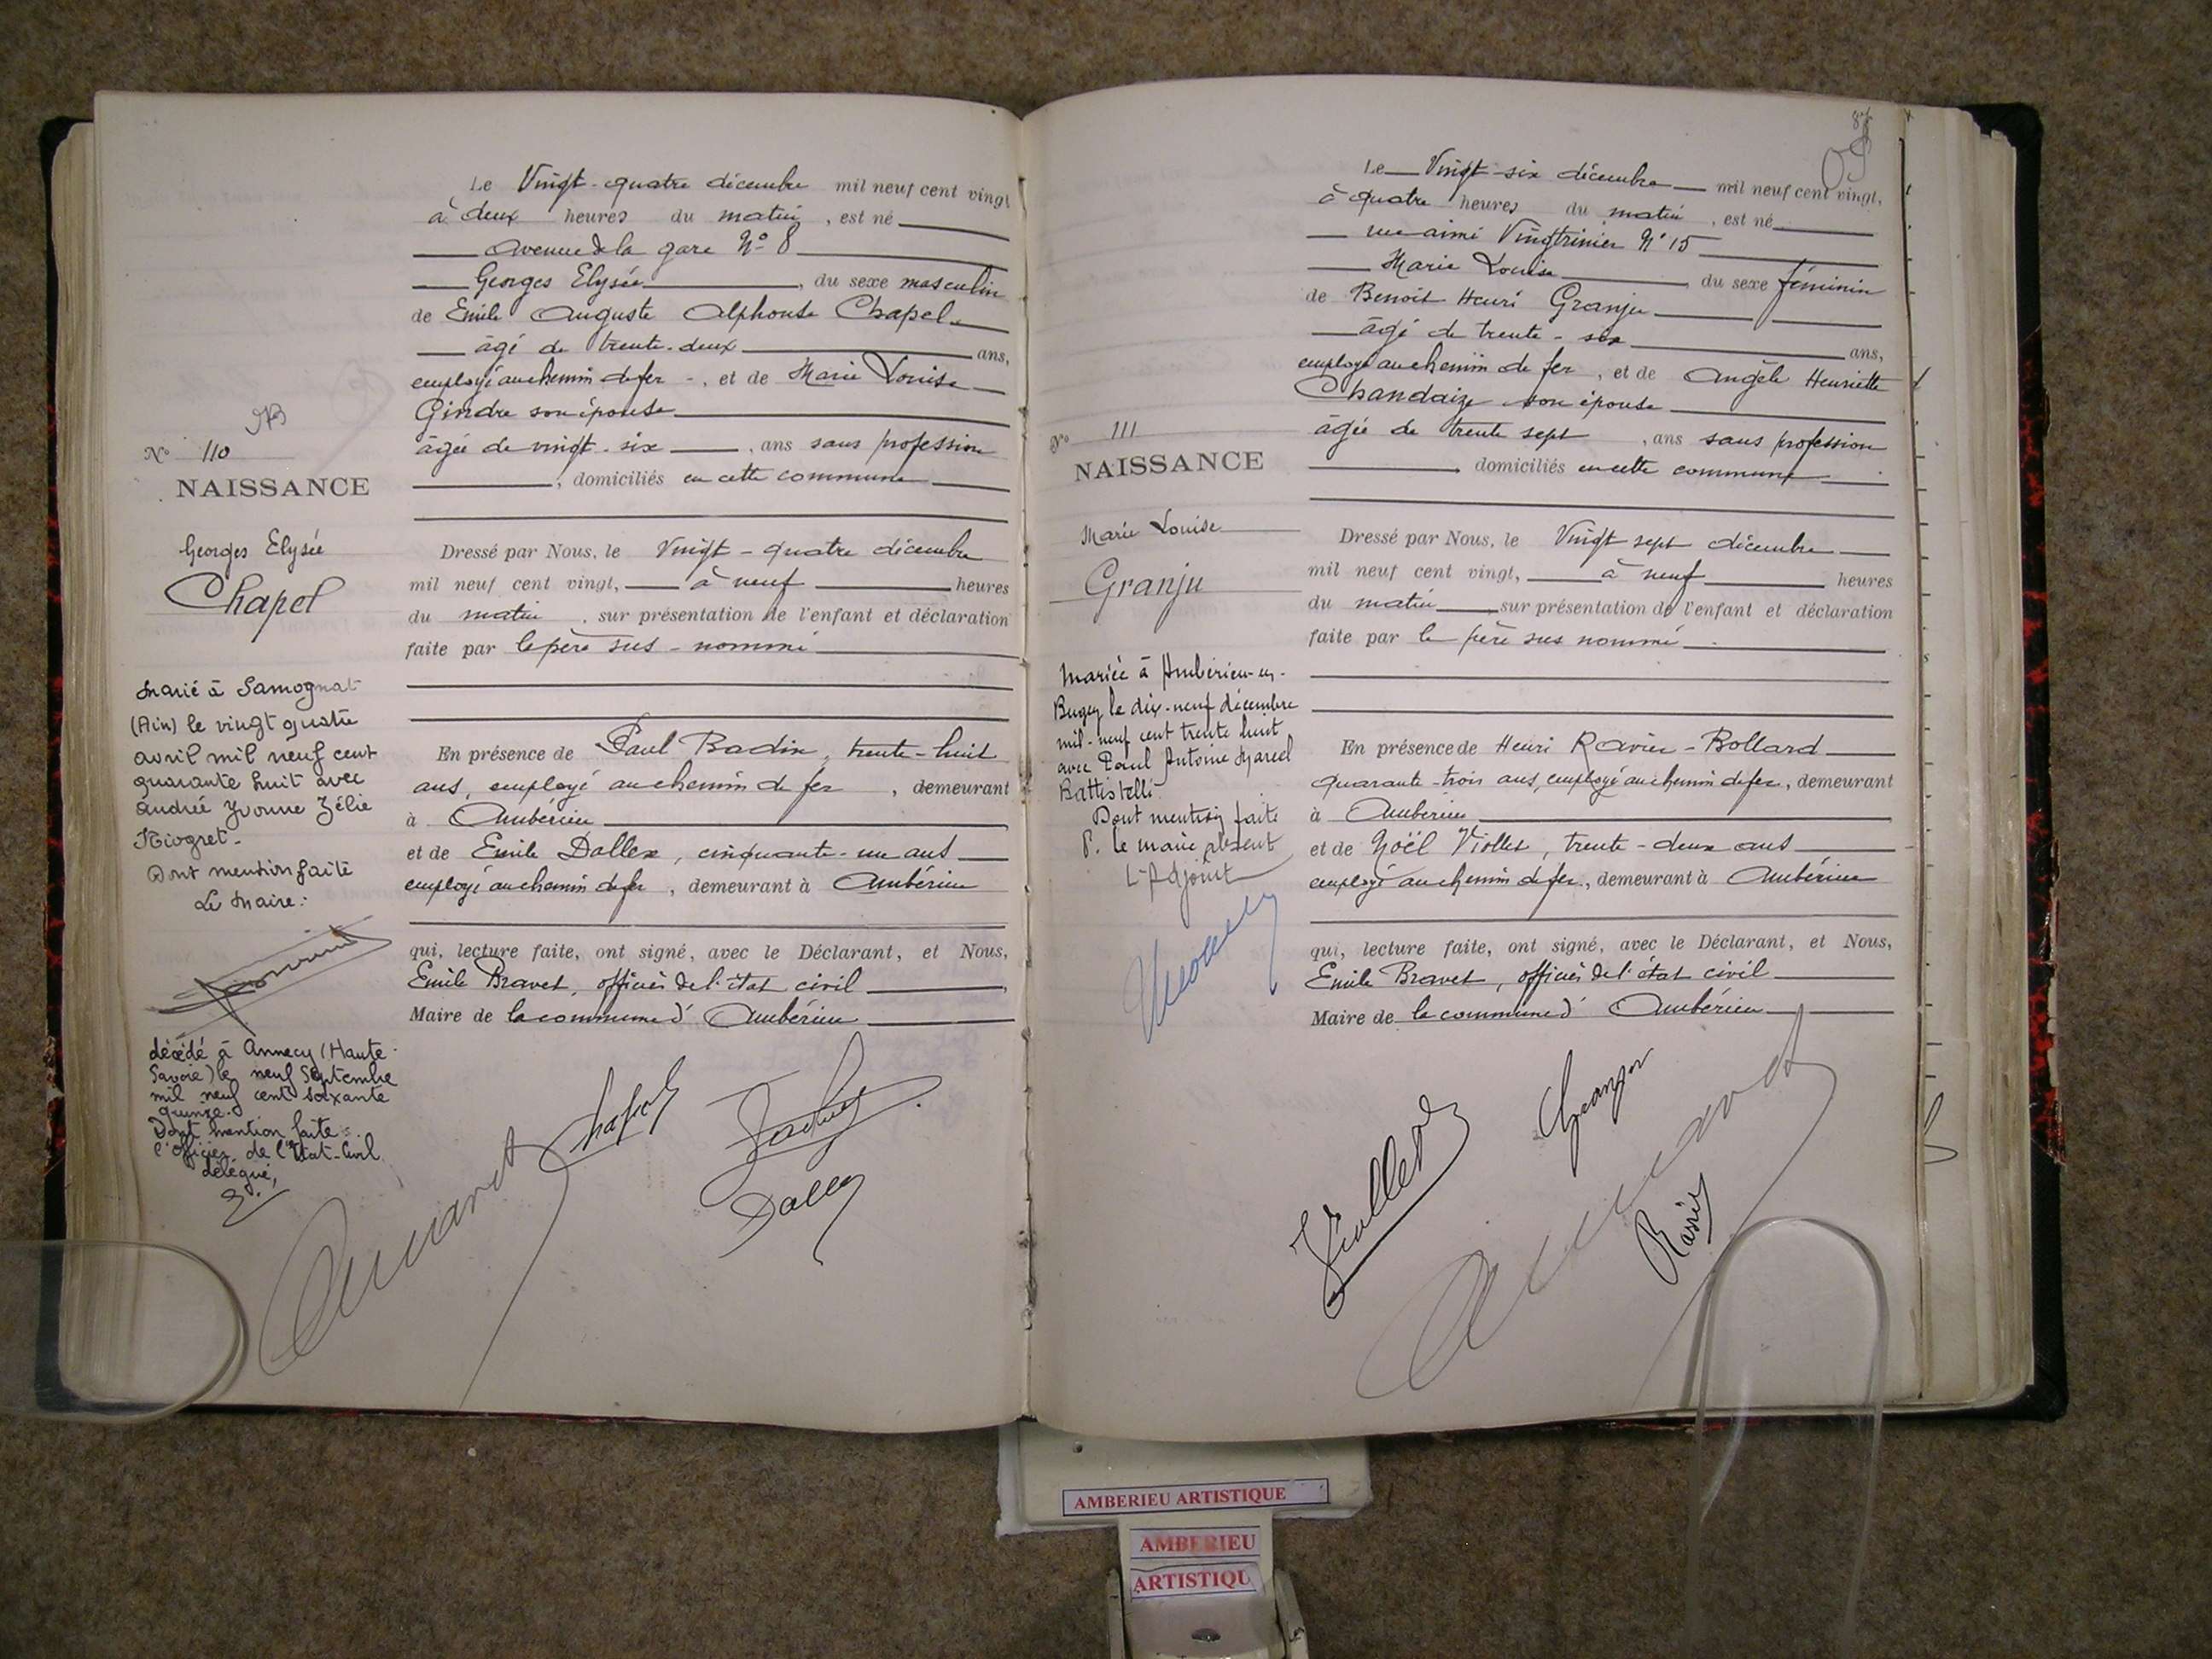 Le Vingt-quatre décembre mil neuf cent vingt
à deux heures du matin, est né
avenue de la gare N° 8
Georges Elysée, du sexe masculin
de Emile Auguste Alphonse Chapel
âgé de trente-deux ans,
employé au chemin de fer, et de Marie Louise
Gindre son épouse
âgée de vingt-six, ans sans profession
, domiciliés en cette commune
N° 110
NAISSANCE
Georges Elysée
Chapel
Dressé par Nous, le Vingt-quatre décembre
mil neuf cent vingt, à neuf heures
du matin, sur présentation de l'enfant et déclaration
faite par le père sus-nommé
Marié à Samognat
(Ain) le vingt quatre
avril mil neuf cent
quarante huit avec
Andrée Yvonne Zélie
Niogret.
Dont mention faite
Le Maire:
En présence de Paul Badin, trente-huit
ans, employé au chemin de fer, demeurant
à Ambérieu
et de Emile Dallex, cinquante-un ans
employé au chemin de fer, demeurant à Ambérieu
qui, lecture faite, ont signé, avec le Déclarant, et Nous,
Emile Bravet, officier de l'état civil,
Maire de la commune d'Ambérieu
décédé à Annecy (Haute-
Savoie) le neuf Septembre
mil neuf cent soixante
quinze.
Dont mention faite
l'officier de l'Etat-Civil
délégué,
Chapel
Le Vingt-six décembre mil neuf cent vingt,
à quatre heures du matin, est né
rue aimé Vingtrinier N° 15
Marie Louise, du sexe féminin
de Benoit Henri Granju
âgé de trente-six ans,
employé au chemin de fer, et de Angèle Henriette
Chandaize son épouse
âgée de trente sept, ans sans profession
, domiciliés en cette commune
N° 111
NAISSANCE
Marie Louise
Granju
Dressé par Nous, le Vingt sept décembre
mil neuf cent vingt, à neuf heures
du matin sur présentation de l'enfant et déclaration
faite par le père sus nommé
Mariée à Ambérieu-en-
Bugey le dix-neuf décembre
mil-neuf cent trente huit
avec Paul Antoine Marcel
Battistelli
Dont mention faite
P. le maire absent
L'Adjoint
En présence de Henri Ravier-Bollard
quarante-trois ans, employé au chemin de fer, demeurant
à Ambérieu
et de Noël Viollet, trente-deux ans
employé au chemin de fer, demeurant à Ambérieu
qui, lecture faite, ont signé, avec le Déclarant, et Nous,
Emile Bravet, officier de l'état civil
Maire de la commune d'Ambérieu
Granju
Viollet
Ravier
AMBERIEU ARTISTIQUE
AMBERIEU
ARTISTIQU